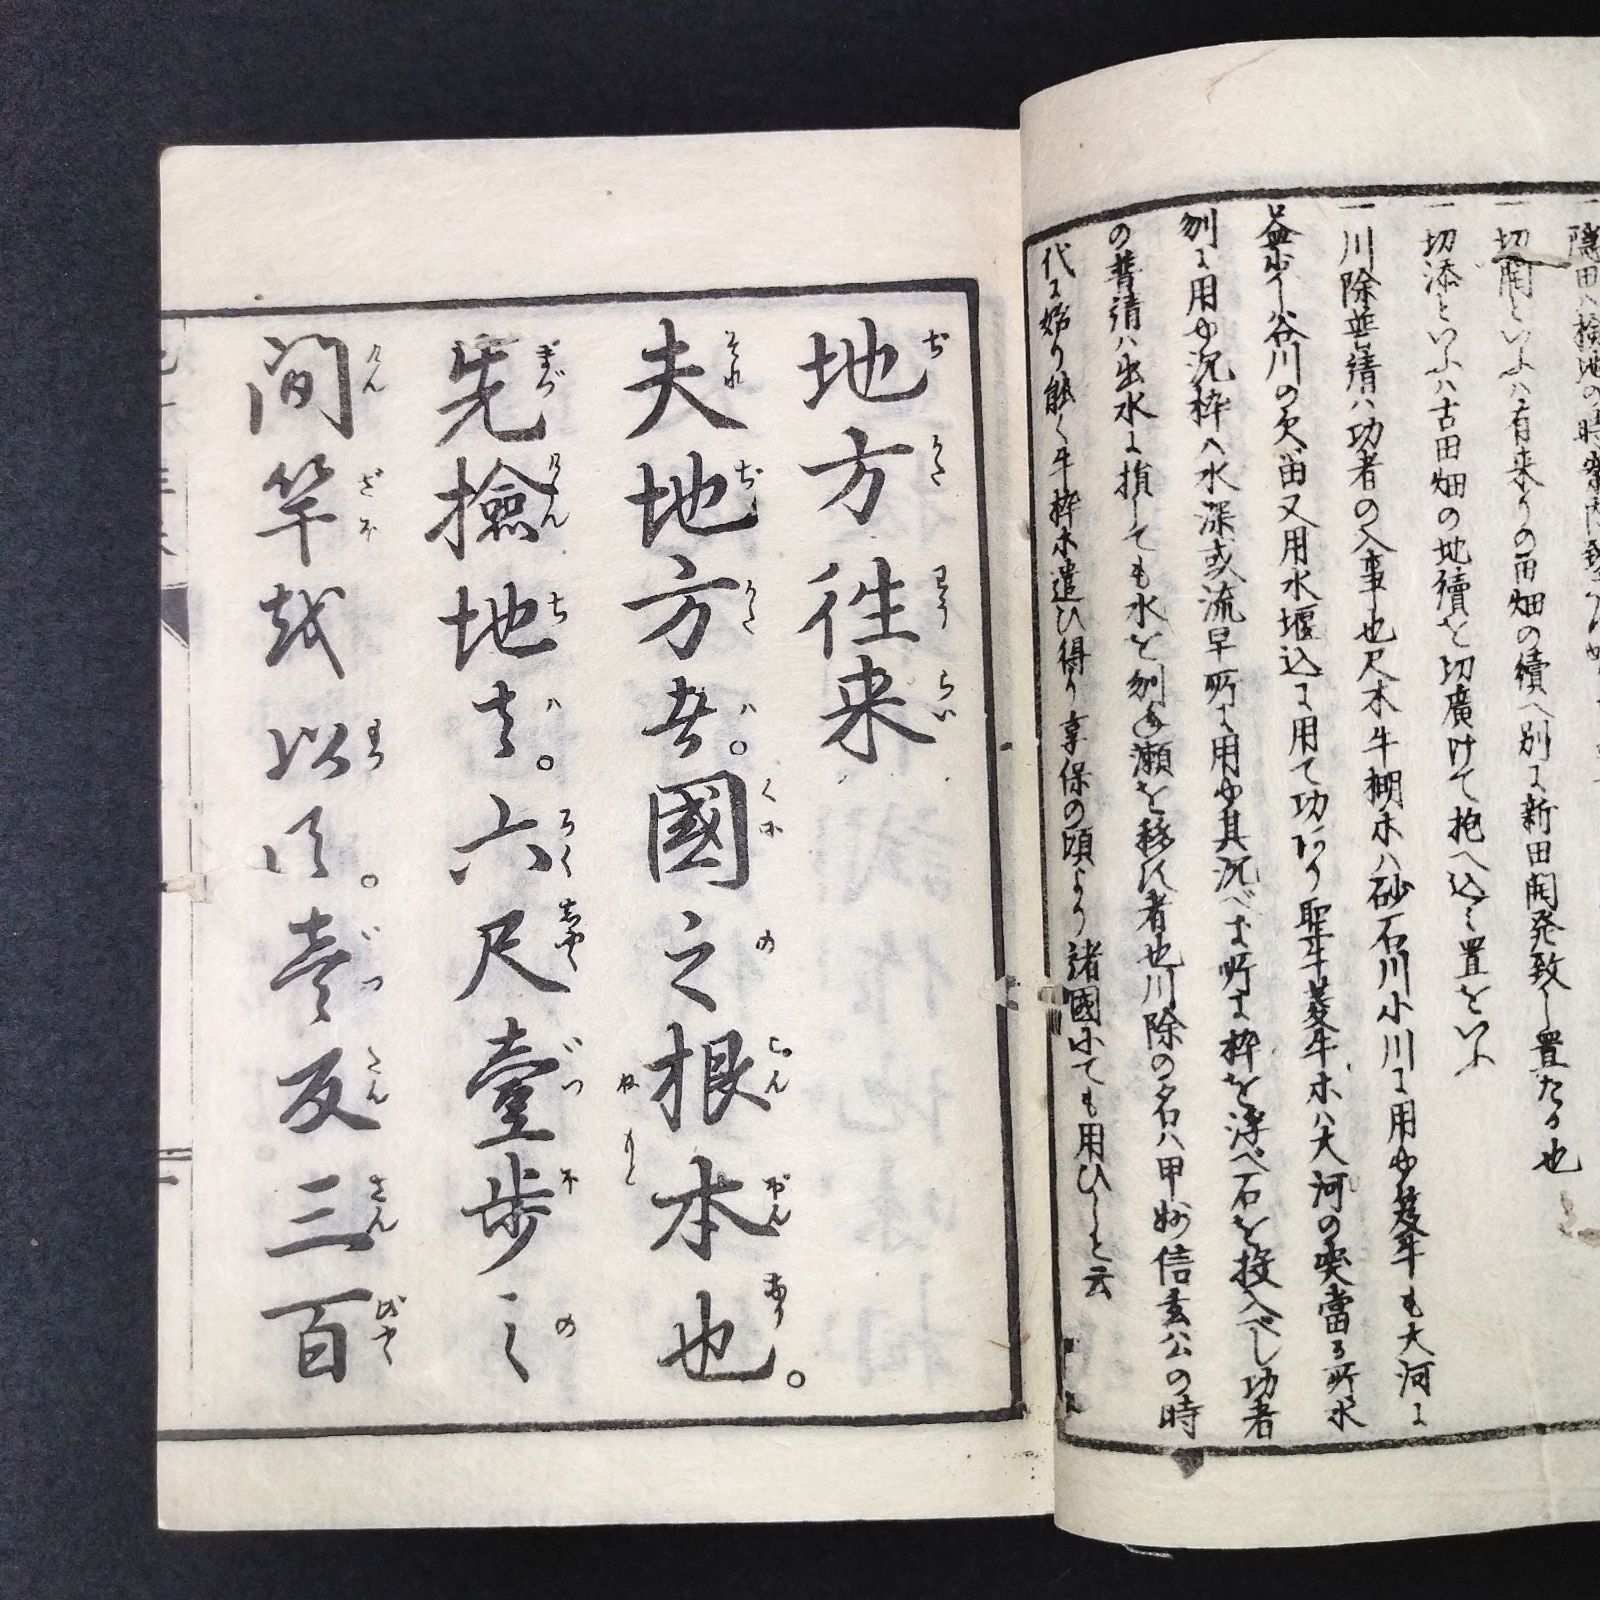 一切開といふハ有来りの田畑の續へ別に新田開発致し置たる也
一切添といふハ古田畑の地續を切廣けて抱へ込ミ置をいふ
一川除普請ハ功者の入事也尺木牛棚木ハ砂石川小川に用ゆ菱牛も大河に
用て功あり聖牛菱牛木ハ大河の突當る所水
刎に用ゆ沉枠ハ水深或流早所に用ゆ其沉べき所に枠を浮べ石を投入べし功者
の普請ハ出水に損しても水を刎ね瀬を移す者也川除の名ハ甲州信玄公の時
代に始り能く牛枠木遣ひ得り享保の頃より諸國にても用ひしと云
地方往来
夫地方者。國之根本也。
先撿地者。六尺壹歩之
間竿越以天。壹反三百